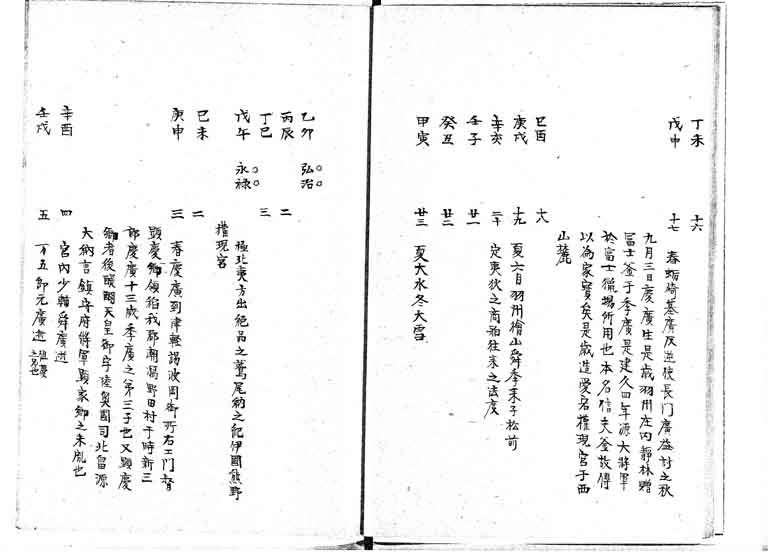 丁未 十六
戊申 十七 春蛎崎基廣反逆使長門廣益討之秋
九月三日慶廣生是歳羽州庄内静林贈
冨士釜于季廣是建久四年源大將軍
於富士獵場所用也本名信夫釜故傳
以為家寳矣是歳造愛宕權現宮于西
山麓
己酉 十八
庚戌 十九 夏六月羽州檜山舜季来于松前
辛亥 二十 定夷狄之商舶往来之法度
壬子 廿一
癸丑 廿二
甲寅 廿三 夏大水冬大雪
乙卯 弘治
丙辰 二
丁巳 三
戊午 永禄 極北夷方出絶品之鷲尾納之紀伊國熊野
權現宮
己未 二
庚申 三 春慶廣到津軽謁波岡御所右工門督
顕慶卿領給我郡潮潟野田村于時新三
郎慶廣十三歳季廣之第三子也又顕慶
卿者後醍醐天皇御宇陸奥國司北畠源
大納言鎮守府將軍顕家卿之末胤也
辛酉 四 宮内少輔舜廣逝
壬戌 五 万五郎元廣逝